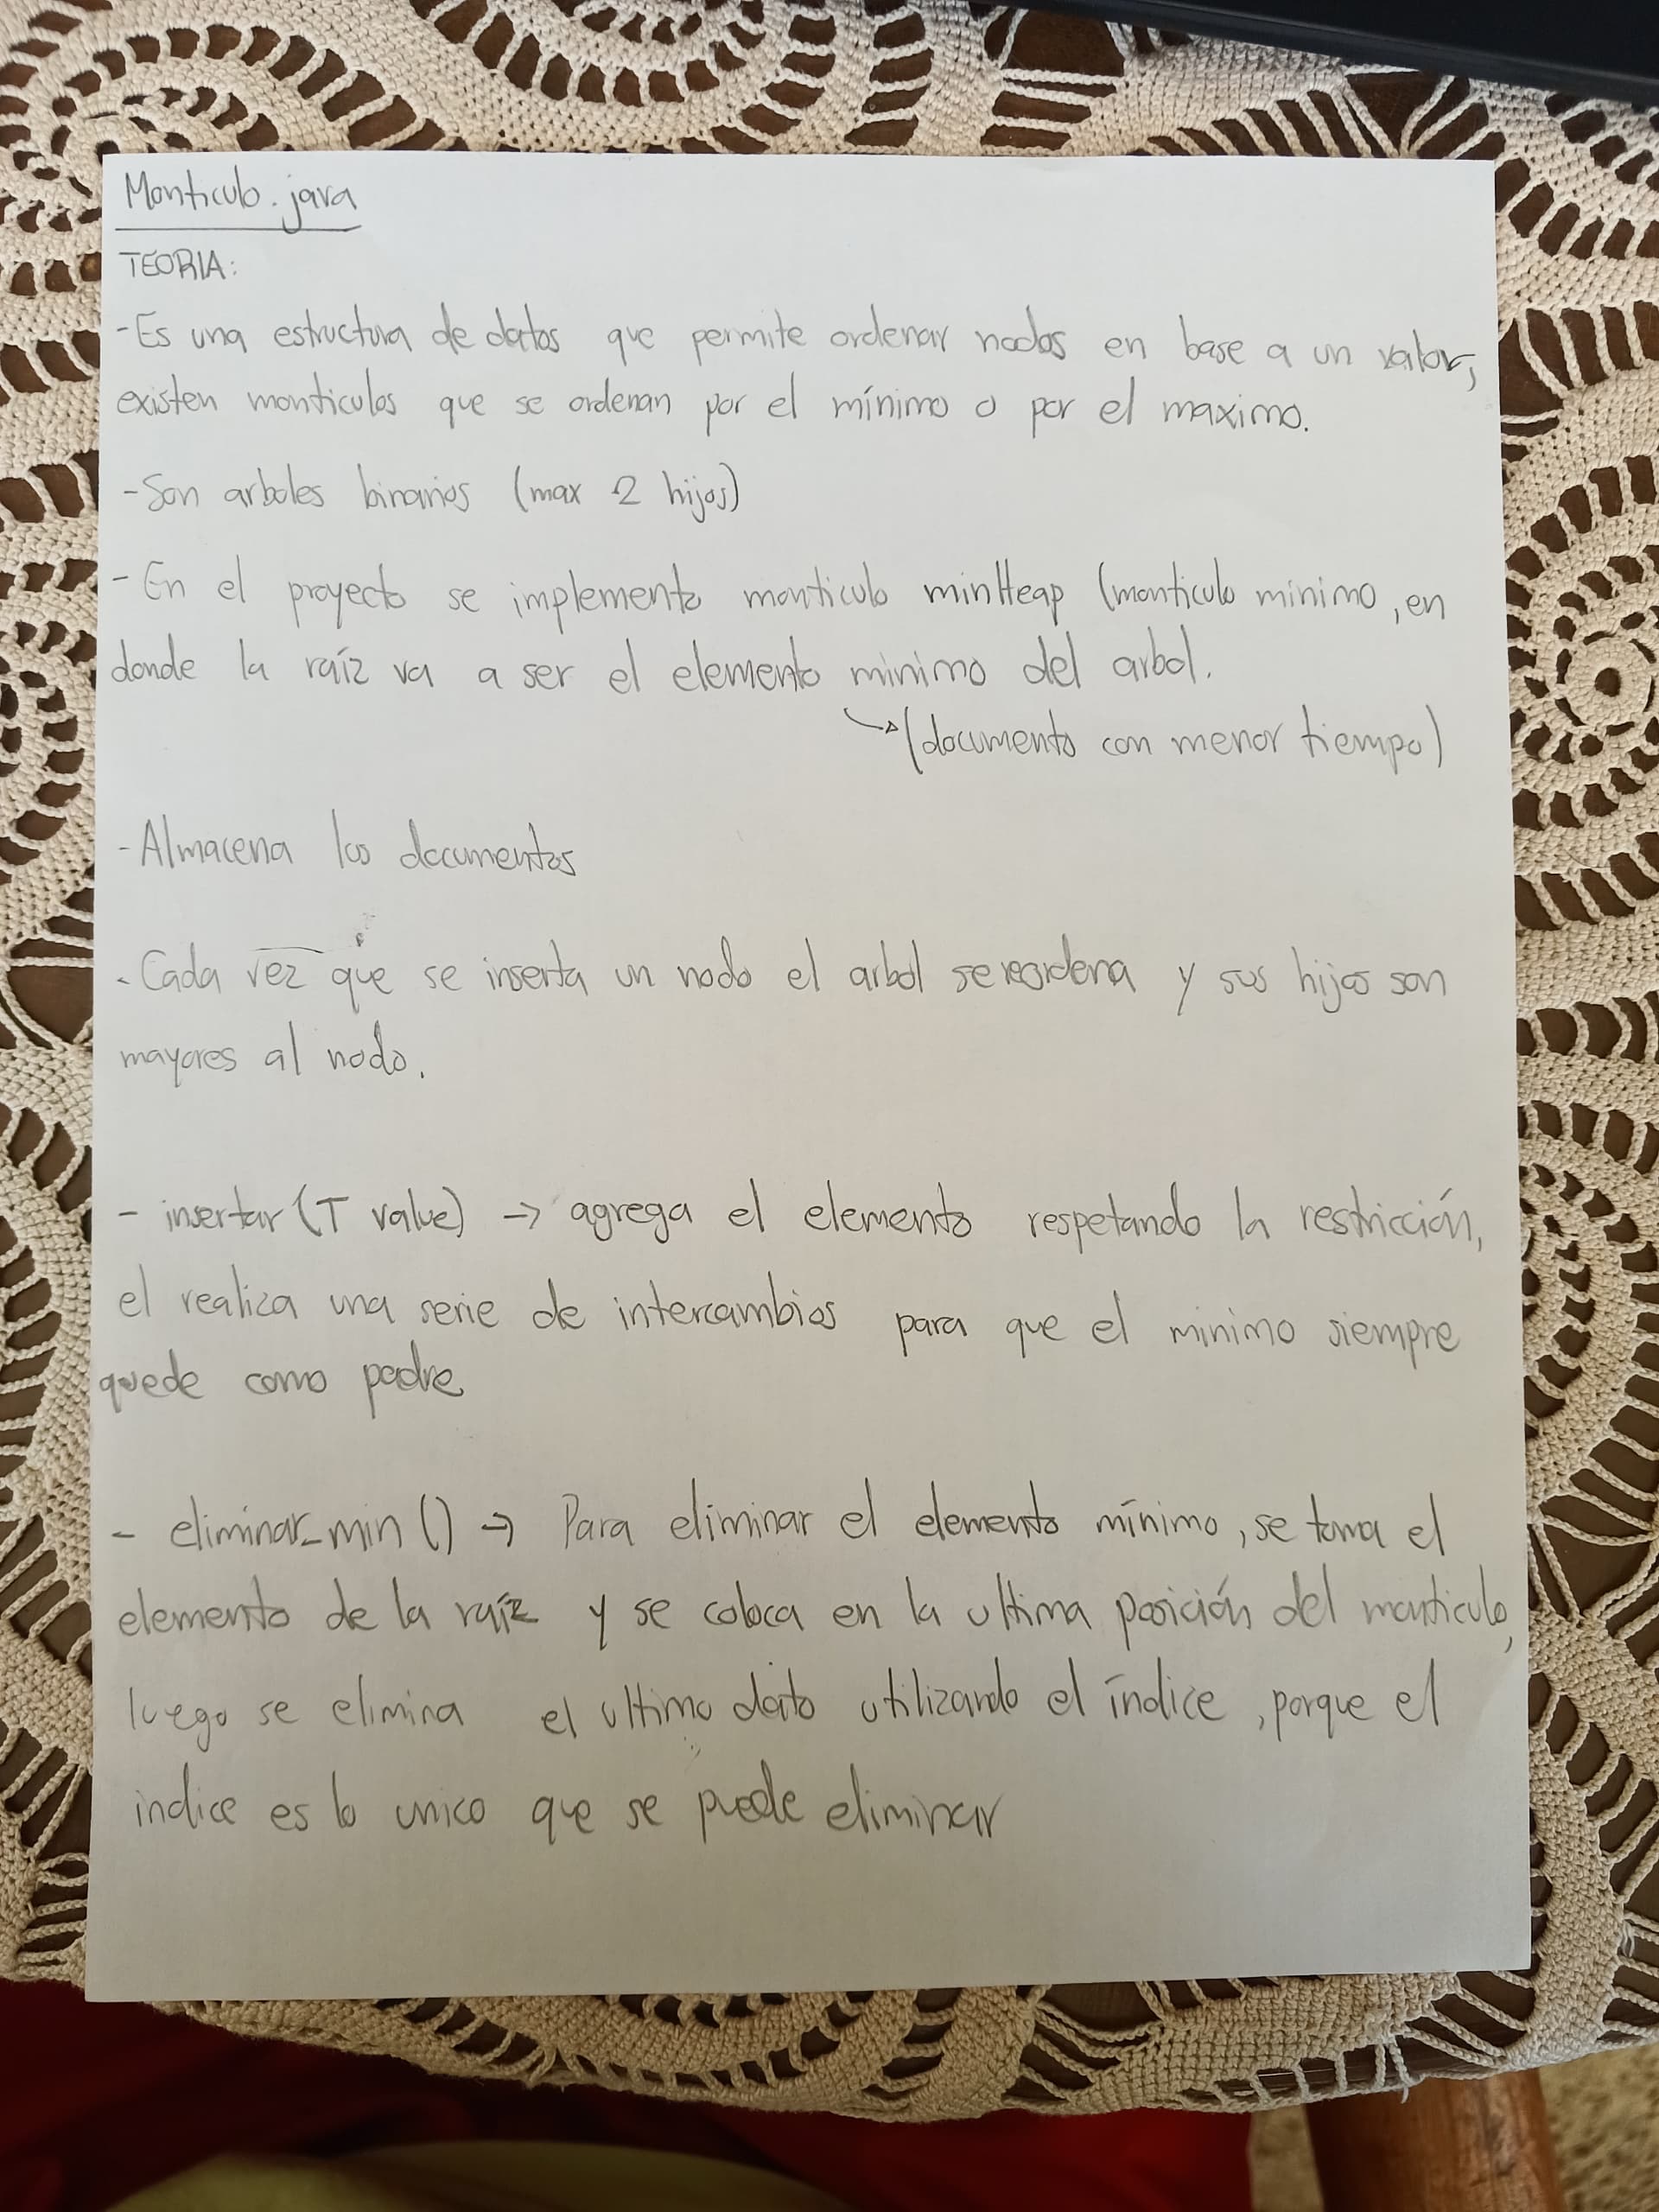 Monticulo.java
TEORIA:
-Es una estructura de datos que permite ordenar nodos en base a un valor,
existen monticulos que se ordenan por el mínimo o por el maximo.
-Son arboles binarios (max 2 hijos)
-En el proyecto se implemento monticulo minHeap (monticulo minimo, en
donde la raíz va a ser el elemento minimo del arbol.
(documento con menor tiempo)
-Almacena los documentos
-Cada vez que se inserta un nodo el arbol se reordena y sus hijos son
mayores al nodo.
- insertar (T value) → agrega el elemento respetando la restricción,
el realiza una serie de intercambios para que el minimo siempre
quede como padre
- eliminar_min () → Para eliminar el elemento mínimo, se toma el
elemento de la raíz y se coloca en la ultima posición del monticulo,
luego se elimina el ultimo dato utilizando el índice, porque el
indice es lo unico que se puede eliminar